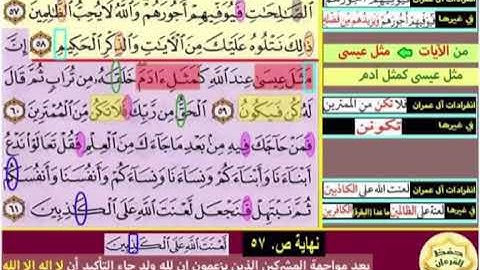 ٱلصَّٰلِحَٰتِ فَيُوَفِّيهِمۡ أُجُورَهُمۡۗ وَٱللَّهُ لَا يُحِبُّ ٱلظَّٰلِمِينَ ٥٧
ذَٰلِكَ نَتۡلُوهُ عَلَيۡكَ مِنَ ٱلۡأٓيَٰتِ وَٱلذِّكۡرِ ٱلۡحَكِيمِ ٥٨ إِنَّ
مَثَلَ عِيسَىٰ عِندَ ٱللَّهِ كَمَثَلِ ءَادَمَۖ خَلَقَهُۥ مِن تُرَابٖ ثُمَّ قَالَ
لَهُۥ كُن فَيَكُونُ ٥٩ ٱلۡحَقُّ مِن رَّبِّكَ فَلَا تَكُن مِّنَ ٱلۡمُمۡتَرِينَ ٦٠
فَمَنۡ حَآجَّكَ فِيهِ مِنۢ بَعۡدِ مَا جَآءَكَ مِنَ ٱلۡعِلۡمِ فَقُلۡ تَعَالَوۡاْ نَدۡعُ
أَبۡنَآءَنَا وَأَبۡنَآءَكُمۡ وَنِسَآءَنَا وَنِسَآءَكُمۡ وَأَنفُسَنَا وَأَنفُسَكُمۡ
ثُمَّ نَبۡتَهِلۡ فَنَجۡعَل لَّعۡنَتَ ٱللَّهِ عَلَى ٱلۡكَٰذِبِينَ ٦١
في غيرها
من الآيات
مثل عيسى
مثل عيسى كمثل ادم
انفرادات آل عمران فلا تكن من الممترين
في غيرها تكونن
انفرادات آل عمران لعنت الله على الكاذبين
في غيرها لعنة الله على الظالمين ماعدا (البقرة) الكافرين
نهاية ص. ٥٧
لَّعۡنَتَ ٱللَّهِ عَلَى ٱلۡكَٰذِبِينَ
بعد مواجهة المشركين الذين يزعمون ان لله ولد جاء التأكيد أن لا إله إلا الله
حفظ القرءان